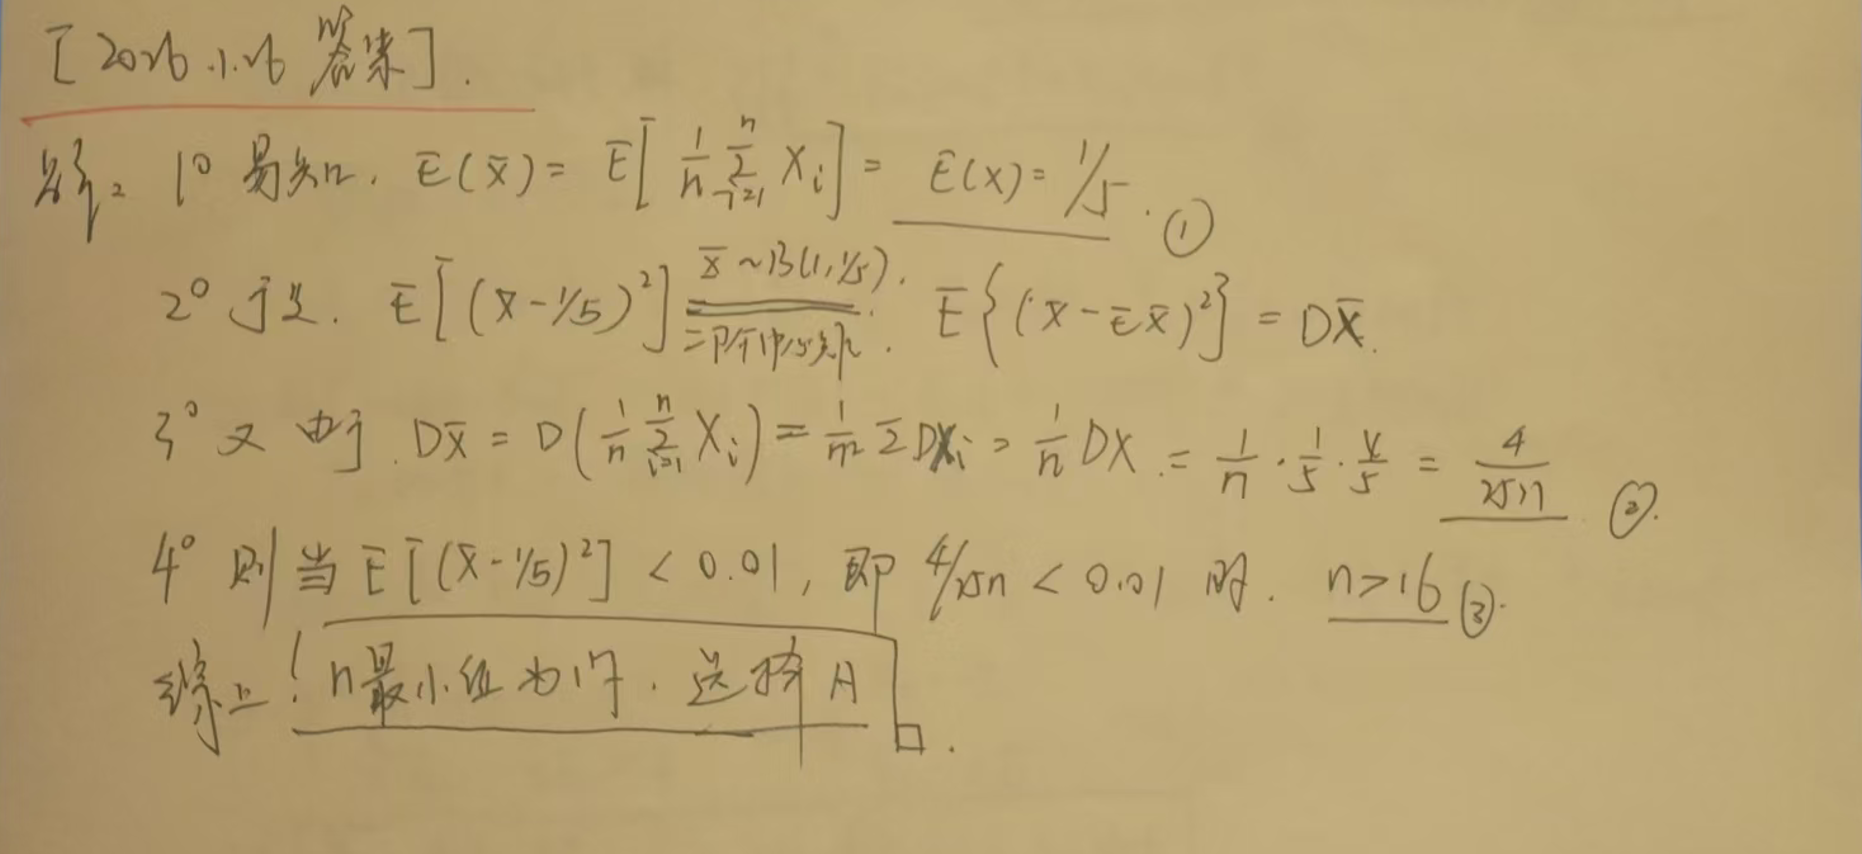 [2026.1.26 答案].
解: 1° 易知. E(x̄) = E[1/n Σ_{i=1}^{n} X_i] = E(X) = 1/5. ①
2° 于是. E[(x̄-1/5)²] = E{(x̄-Ex̄)²} = Dx̄. x̄~B(1,1/5). 二阶中心矩.
3° 又由于. Dx̄ = D(1/n Σ_{i=1}^{n} X_i) = 1/n² ΣDX_i = 1/n DX = 1/n · 1/5 · 4/5 = 4/25n ②.
4° 则当 E[(x̄-1/5)²] < 0.01, 即 4/25n < 0.01 时. n>16 ③.
综上! n最小值为17. 选择 A □.